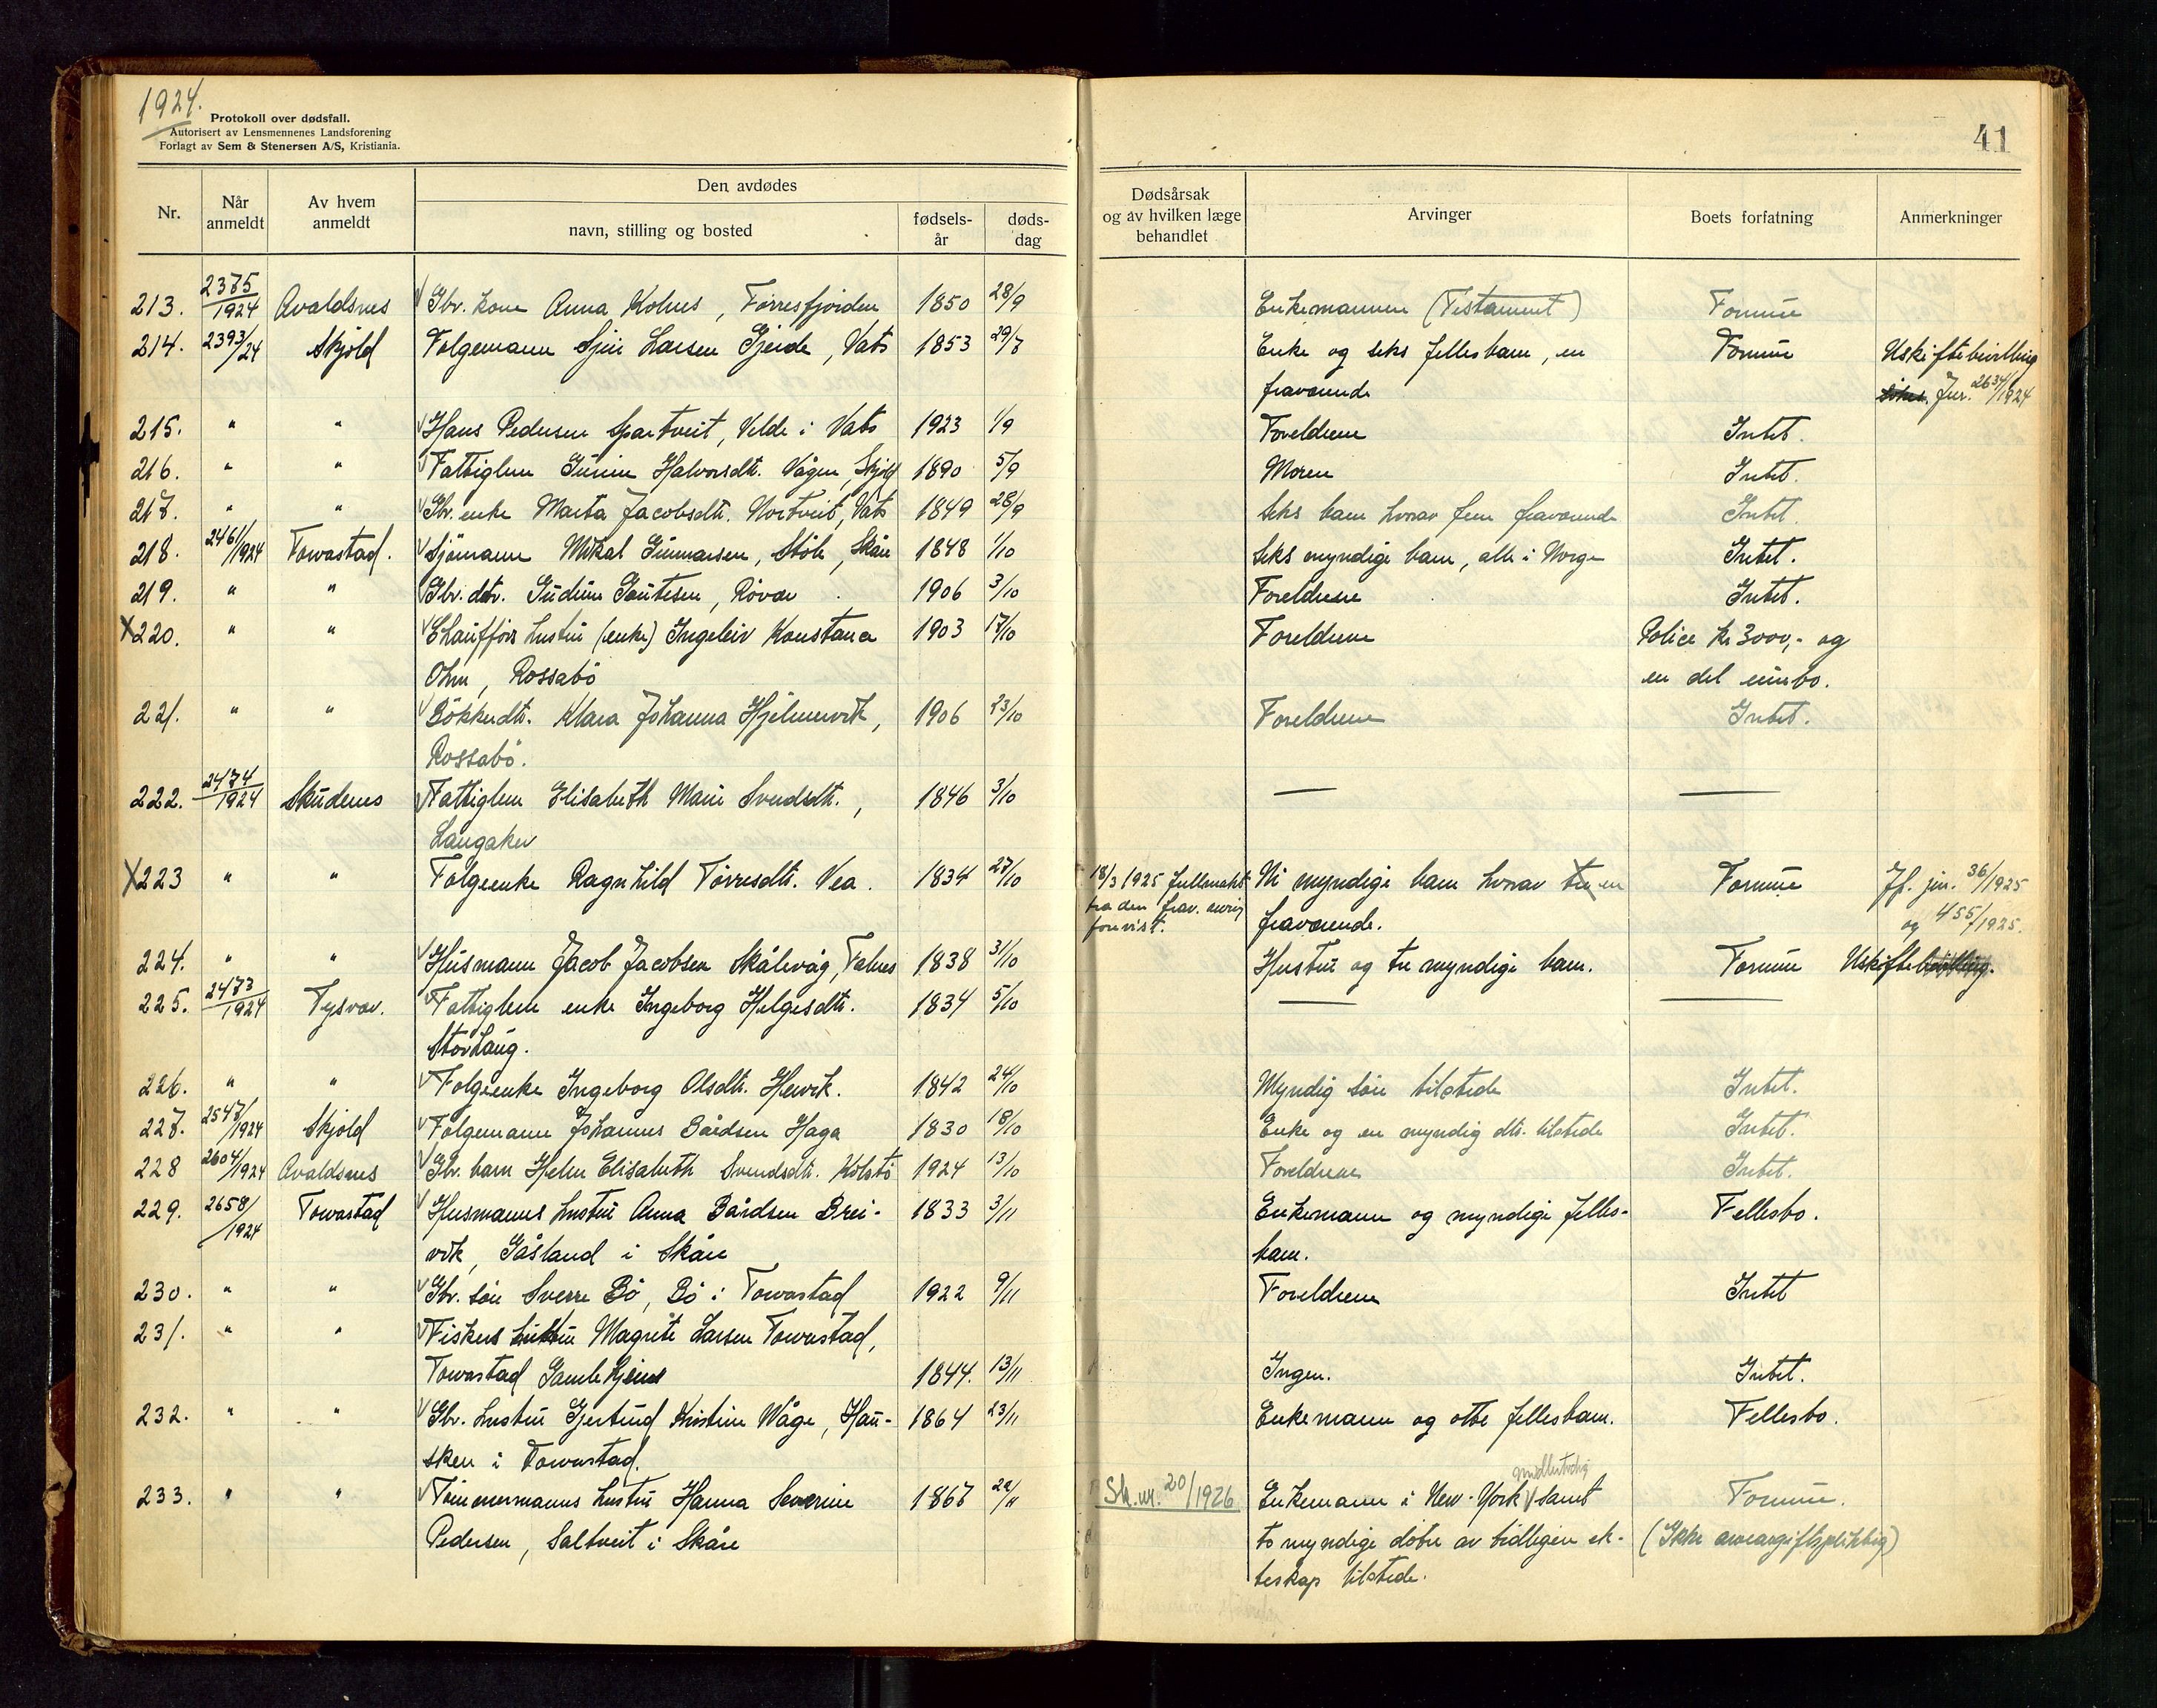 1924.
Protokoll over dødsfall.
Autorisert av Lensmennenes Landsforening
Forlagt av Sem & Stenersen A/S, Kristiania.
41
Nr. Når anmeldt Av hvem anmeldt Den avdødes navn, stilling og bosted fødsels-år døds-dag Dødsårsak og av hvilken læge behandlet Arvinger Boets forfatning Anmerkninger
213. 2375/1924 Avaldsnes Gbr. kone Anna Kolnes, Førresfjorden 1850 28/9 Enkemannen (Testament) Formue
214. 2393/24 Skjold Følgemann Larsen Gjerde, Vats 1853 29/8 Enke og seks fellesbarn, en Formue Uskiftebevilling
fraværende Jur. 2634/1924
215. " " Hans Pedersen Spartveit, Velde i Vats 1923 1/9 Foreldrene Intet.
216. " " Fattiglem Halvorsdtr. Vågen, Skjold 1890 5/9 Moren Intet.
217. " " Gbr. enke Marta Jacobsdtr. Nortveit, Vats 1849 28/9 Seks barn hvorav fem fraværende Intet.
218. 2461/1924 Torvastad. Sjømann Mikal Gunnarsen, Skåre 1848 1/10 Seks myndige barn, alle i Norge Intet.
219. " " Gbr. dtr. Gudrun Gautesen, Røvær 1906 3/10 Foreldrene Intet.
X220. " " Chaufførs hustru (enke) Ingeleiv Konstance 1903 17/10 Foreldrene Police kr 3000,- og
Ohm, Rossabø en del innbo.
221. " " Bøkkerdtr. Klara Johanna Hjelmervik, 1906 23/10 Foreldrene Intet.
Rossabø.
222. 2474/1924 Skudenes Fattiglem Elisabeth Marie Svendsdtr., 1846 3/10 — —
Langaker
X223 " " Følgeenke Ragnhild Tørresdtr. Vea. 1834 27/10 18/3 1925 fullmakt Ni myndige barn hvorav en Formue Jf. jur. 36/1925
fra den frav. arving forevist. fraværende. og 455/1925.
224. " " Husmann Jacob Jacobsen Skålevåg, Falnes 1838 31/10 Hustru og tre myndige barn. Formue Uskiftebevilling.
225. 2473/1924 Tysvær. Fattiglem enke Ingeborg Helgesdtr. 1834 5/10 — —
Storhaug.
226. " " Følgeenke Ingeborg Olsdtr. Hervik. 1842 24/10 Myndig søn tilstede Intet.
227. 2547/1924 Skjold Følgemann Johannes Bårdsen Haga 1830 18/10 Enke og en myndig dtr. tilstede Intet.
228 2604/1924 Avaldsnes Gbr. barn Elisabeth Svendsdtr. Kolstø 1924 13/10 Foreldrene Intet.
229. 2658/1924 Torvastad Husmanns hustru Anna Bårdsen Brei- 1833 3/11 Enkemann og myndige felles- Fellesbo.
vik, Gåsland i Skåre barn.
230. " " Gbr. søn Sverre Bø, Bø i Torvastad 1922 9/11 Foreldrene Intet
231. " " Fiskers hustru Magrete Larsen Torvastad,
Torvastad Gamlehjem 1844. 13/11 Ingen. Intet.
232. " " Gbr. hustru Gjertrud Kristine Våge, Hau- 1864 23/11 Enkemann og otte fellesbarn. Fellesbo.
sken i Torvastad.
midlertidig
233. " " Tømmermanns hustru Hanna Severine 1867 22/11 Sk.nr. 20/1926 Enkemann i New-York samt Formue.
Pedersen, Saltveit i Skåre to myndige døtre av tidligere ek- (Ikke arveavgiftspliktig)
teskap tilstede.